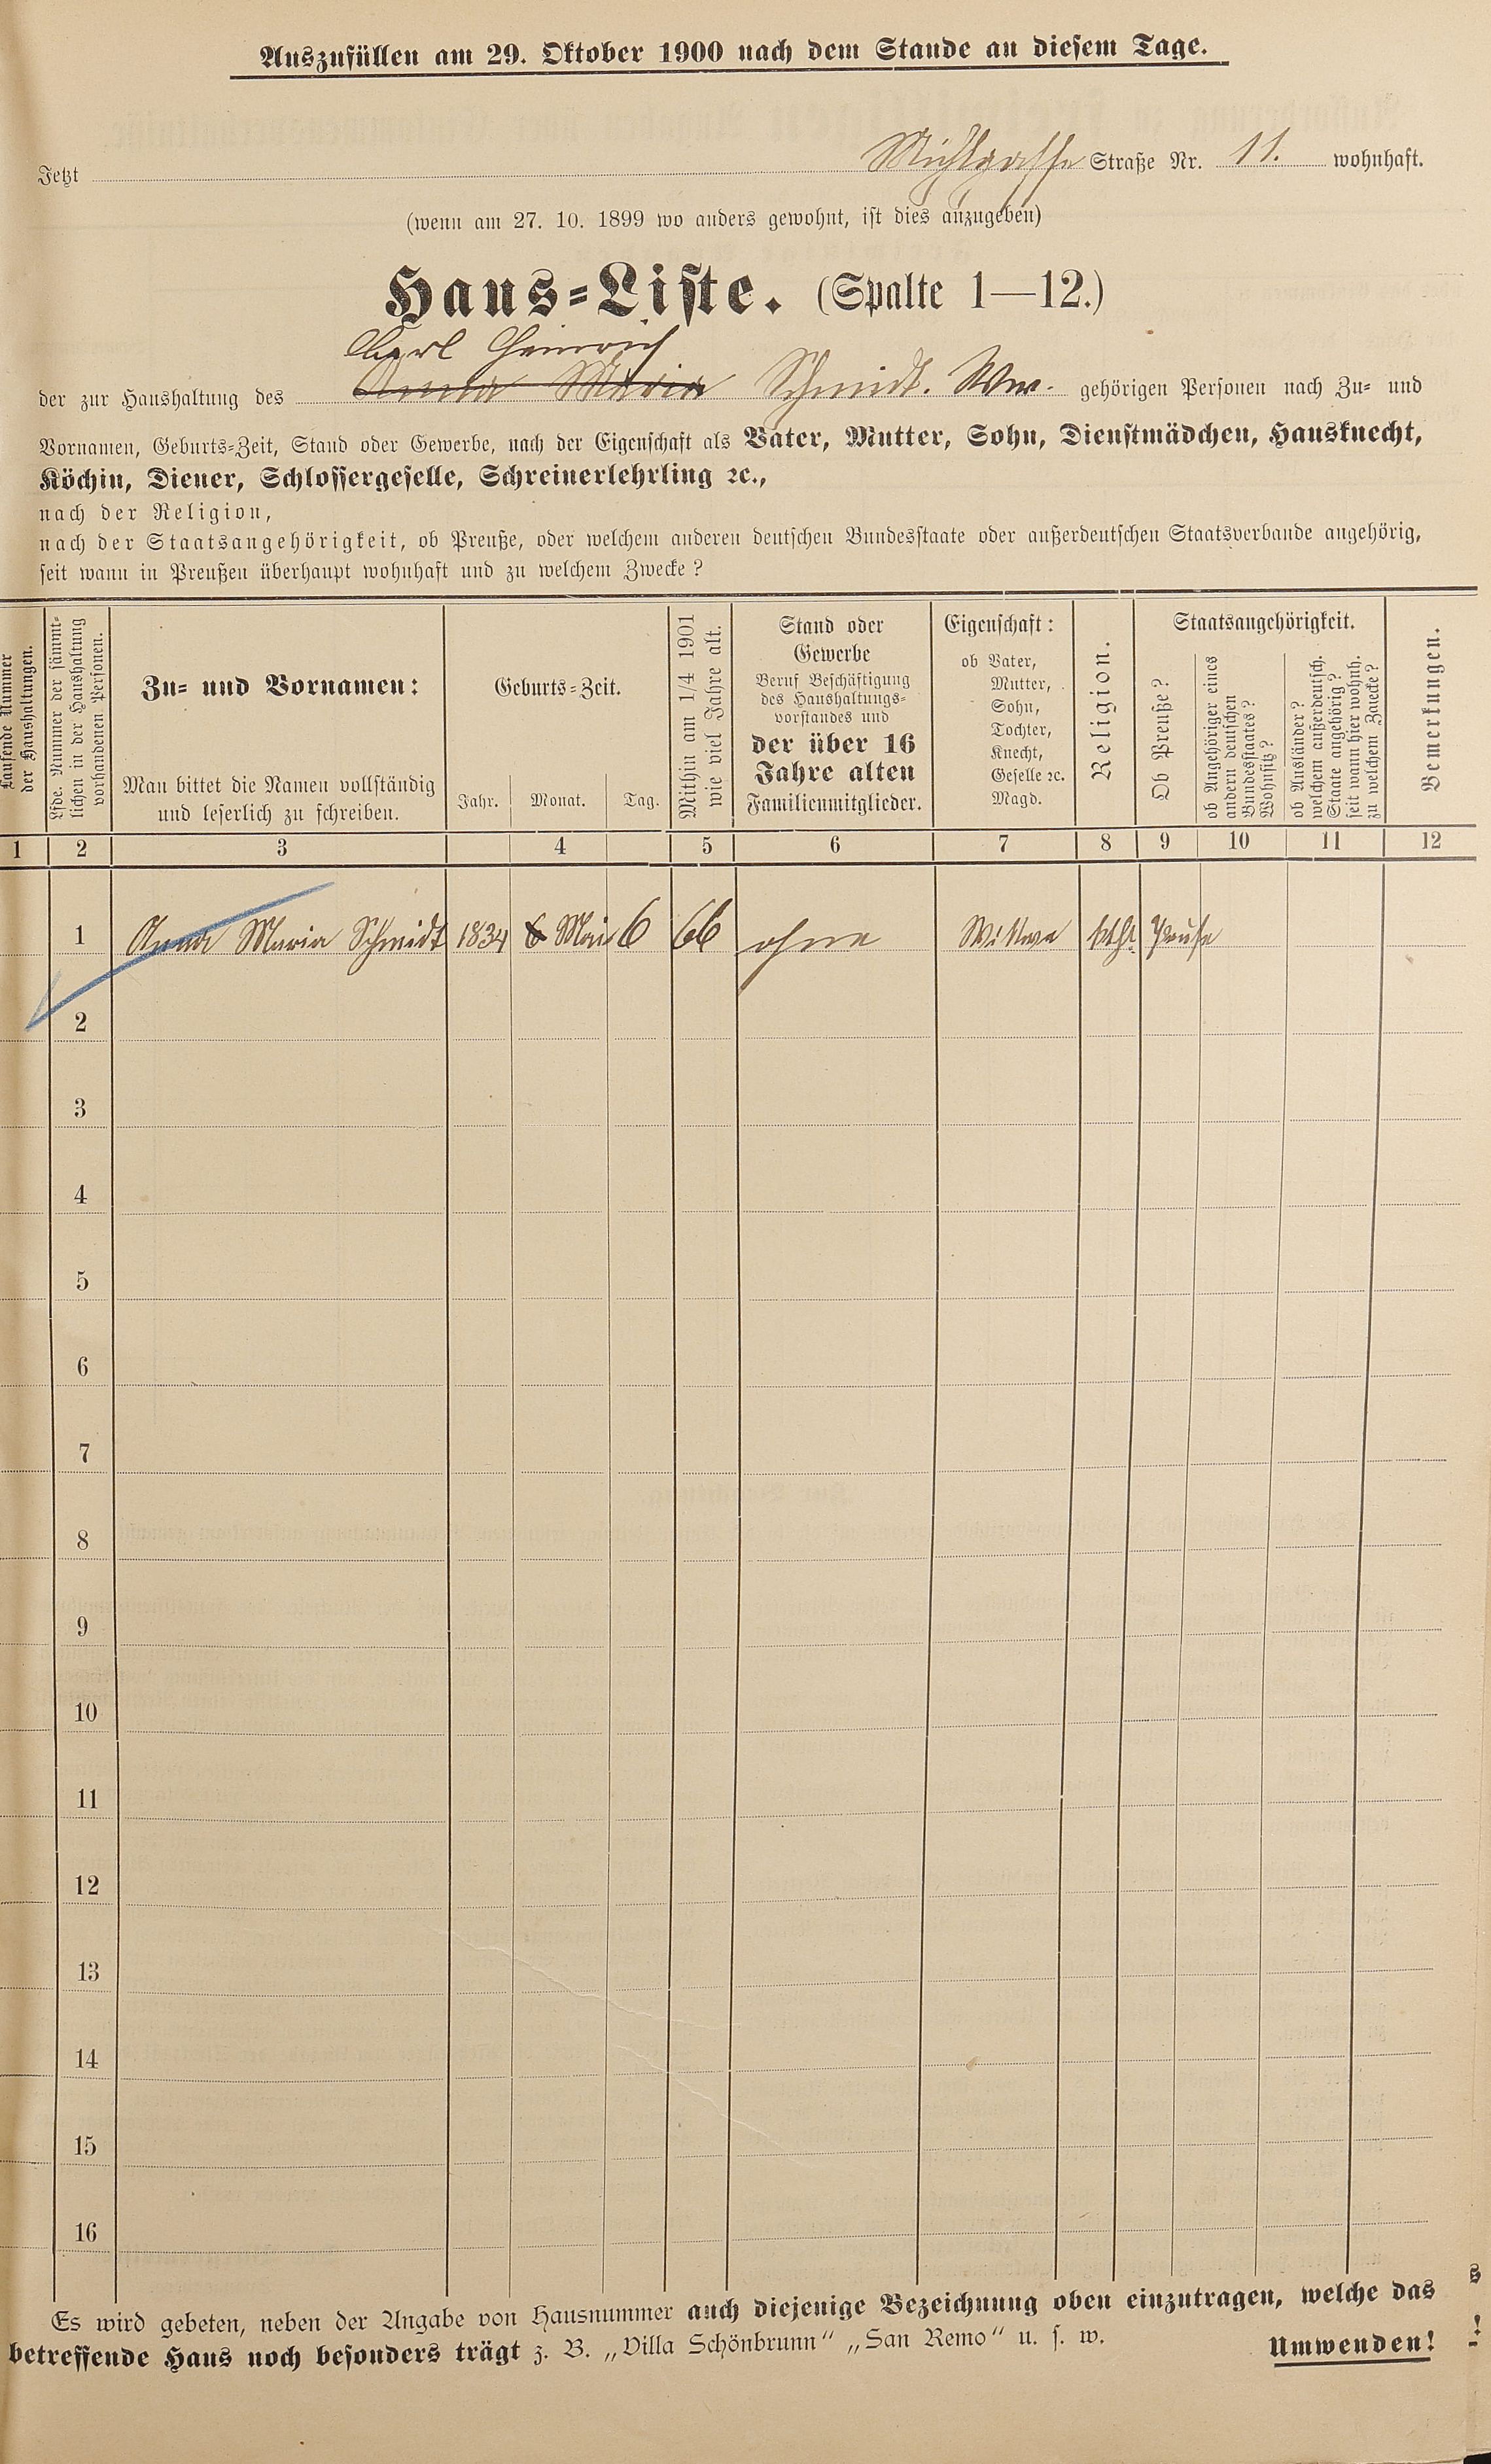 Auszufüllen am 29. Oktober 1900 nach dem Stande an diesem Tage.
Jetzt Mühlgasse Straße Nr. 11. wohnhaft.
(wenn am 27. 10. 1899 wo anders gewohnt, ist dies anzugeben)
Haus-Liste. (Spalte 1—12.)
Carl Heinrich
der zur Haushaltung des Anna Maria Schmidt. Ww. gehörigen Personen nach Zu- und
Vornamen, Geburts-Zeit, Stand oder Gewerbe, nach der Eigenschaft als Vater, Mutter, Sohn, Dienstmädchen, Hausknecht,
Köchin, Diener, Schlossergeselle, Schreinerlehrling ꝛc.,
nach der Religion,
nach der Staatsangehörigkeit, ob Preuße, oder welchem anderen deutschen Bundesstaate oder außerdeutschen Staatsverbande angehörig,
seit wann in Preußen überhaupt wohnhaft und zu welchem Zwecke?
Laufende Nummer
der Haushaltungen.
Lfde. Nummer der sämmt-
lichen in der Haushaltung
vorhandenen Personen.
Zu- und Vornamen:
Man bittet die Namen vollständig
und leserlich zu schreiben.
Geburts-Zeit.
Jahr. Monat. Tag.
Mithin am 1/4 1901
wie viel Jahre alt.
Stand oder
Gewerbe
Beruf Beschäftigung
des Haushaltungs-
vorstandes und
der über 16
Jahre alten
Familienmitglieder.
Eigenschaft:
ob Vater,
Mutter,
Sohn,
Tochter,
Knecht,
Geselle ꝛc.
Magd.
Religion.
Staatsangehörigkeit.
Ob Preuße?
ob Angehöriger eines
andern deutschen
Bundesstaates?
Wohnsitz?
ob Ausländer?
welchem außerdeutsch.
Staate angehörig?
seit wann hier wohnh.
zu welchem Zwecke?
Bemerkungen.
1 2 3 4 5 6 7 8 9 10 11 12
1 Anna Maria Schmidt 1834 6 Mai 6 66 ohne Wittwe kath. Preuße
2
3
4
5
6
7
8
9
10
11
12
13
14
15
16
Es wird gebeten, neben der Angabe von Hausnummer auch diejenige Bezeichnung oben einzutragen, welche das
betreffende Haus noch besonders trägt z. B. „Villa Schönbrunn“ „San Remo“ u. s. w.
Umwenden!
s
!